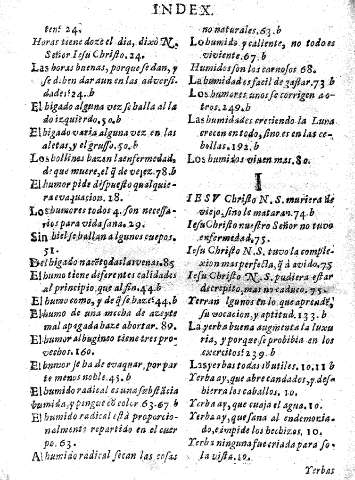 INDEX.
tent 24.
Horas tiene doze el dia, dixo N.
Señor Iesu Christo. 24.
Las horas buenas, porque se dan, y
se deben dar aun en las adversi-
dades 24. b
El higado alguna vez se halla al la
do izquierdo. 50. b
El higado varia alguna vez en las
aletas, y el gruesso. 50. b
Los hollines hazen la enfermedad,
de que muere, el q̃ de vejez. 78. b
El humor pide dispuesto qualquie-
ra evaquacion. 18.
Los humores todos 4. son necessa-
rios para vida sana. 29.
Sin hiel se hallan algunos cuerpos.
51.
Del higado nacẽ todas las venas. 85
El humo tiene diferentes calidades
al principio, que al fin. 44. b
El humo como, y de q̃ se haze. 44. b
El humo de una mecha de azeyte
mal apagada haze abortar. 89.
El humor albugineo tiene tres pro-
vechos. 160.
El humor se ha de evaquar, por par
te menos noble. 45. b
El humido radical es una substãcia
humida, y pingue de color 63. 67. b
El humido radical està proporcio-
nalmente repartido en el cuer
po. 63.
Al humido radical secan las cosas
no naturales. 63. b
Lo humido y caliente, no todo es
viviente. 67. b
Humidos son los carnosos 68.
La humidad es facil de gastar. 73. b
Los humores unos se corrigen a o-
tros. 249. b
Las humidades creciendo la Luna
crecen en todo, sino es en las ce-
bollas. 192. b
Los humidos viven mas. 80.
I
IESV Christo N. S. muriera de
viejo, sino le mataran. 74. b
Iesu Christo nuestro Señor no tuvo
enfermedad. 75.
Iesu Christo N. S. tuvo la comple-
xion mas perfecta, q̃ à avido. 75
Iesu Christo N. S. pudiera estar
decrepito, mas no caduco. 75.
Yerran algunos en lo que aprendẽ,
su vocacion, y aptitud. 133. b
La yerba buena augmenta la luxu
ria, y porque se prohibia en los
exercitos? 239. b
Las yerbas todas utiles. 10. 11 b
Yerba ay, que abre candados, y des-
bierra los caballos. 10.
Yerba ay, que cuaja el agua. 10.
Yerba ay, que sana al endemonia-
do, e impide los hechizos. 10.
Yerba ninguna fue criada para so-
la vista. 10.
Yerbas